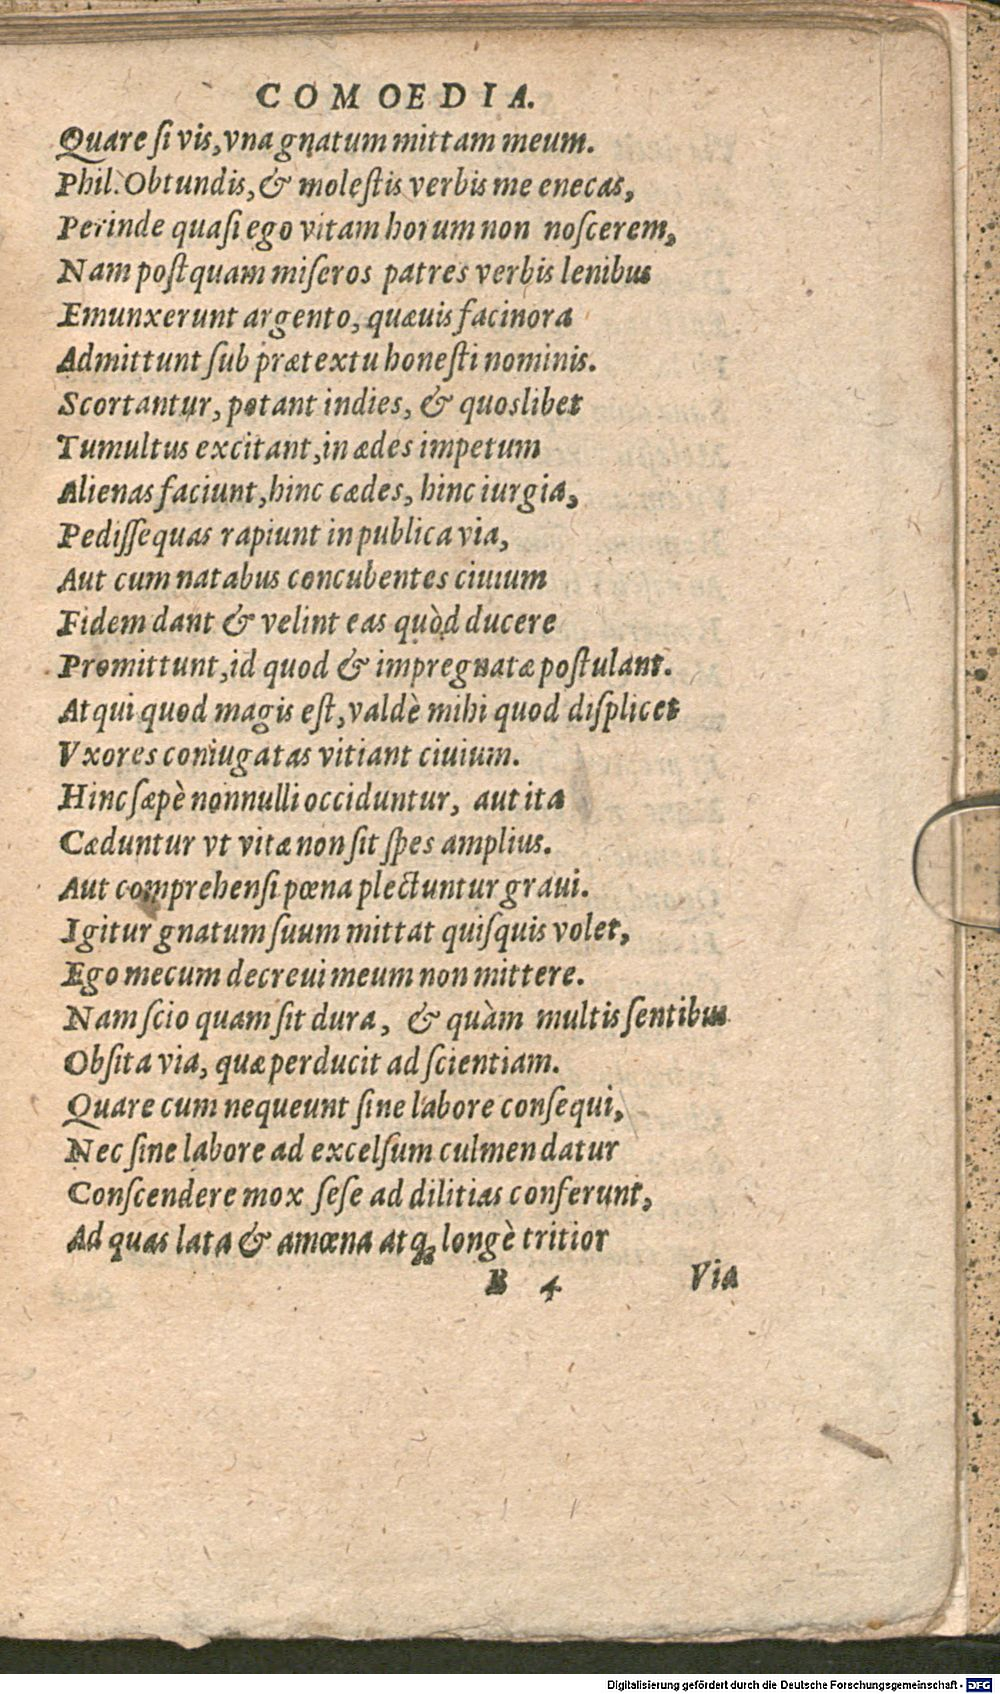 COMOEDIA.
Quare si vis, vna gnatum mittam meum.
Phil. Obtundis, & molestis verbis me enecas,
Perinde quasi ego vitam horum non noscerem,
Nam postquam miseros patres verbis lenibus
Emunxerunt argento, quæuis facinora
Admittunt sub prætextu honesti nominis.
Scortantur, potant indies, & quoslibet
Tumultus excitant, in ædes impetum
Alienas faciunt, hinc cædes, hinc iurgia,
Pedissequas rapiunt in publica via,
Aut cum natabus concubentes ciuium
Fidem dant & velint eas quòd ducere
Promittunt, id quod & impregnatæ postulant.
Atqui quod magis est, valdè mihi quod displicet
Vxores coniugatas vitiant ciuium.
Hinc sæpè nonnulli occiduntur, aut ita
Cæduntur vt vitæ non sit spes amplius.
Aut comprehensi pœna plectuntur graui.
Igitur gnatum suum mittat quisquis volet,
Ego mecum decreui meum non mittere.
Nam scio quam sit dura, & quàm multis sentibus
Obsita via, quæ perducit ad scientiam.
Quare cum nequeunt sine labore consequi,
Nec sine labore ad excelsum culmen datur
Conscendere mox sese ad dilitias conferunt,
Ad quas lata & amœna atq; longè tritior
B 4 Via
Digitalisierung gefördert durch die Deutsche Forschungsgemeinschaft - DFG